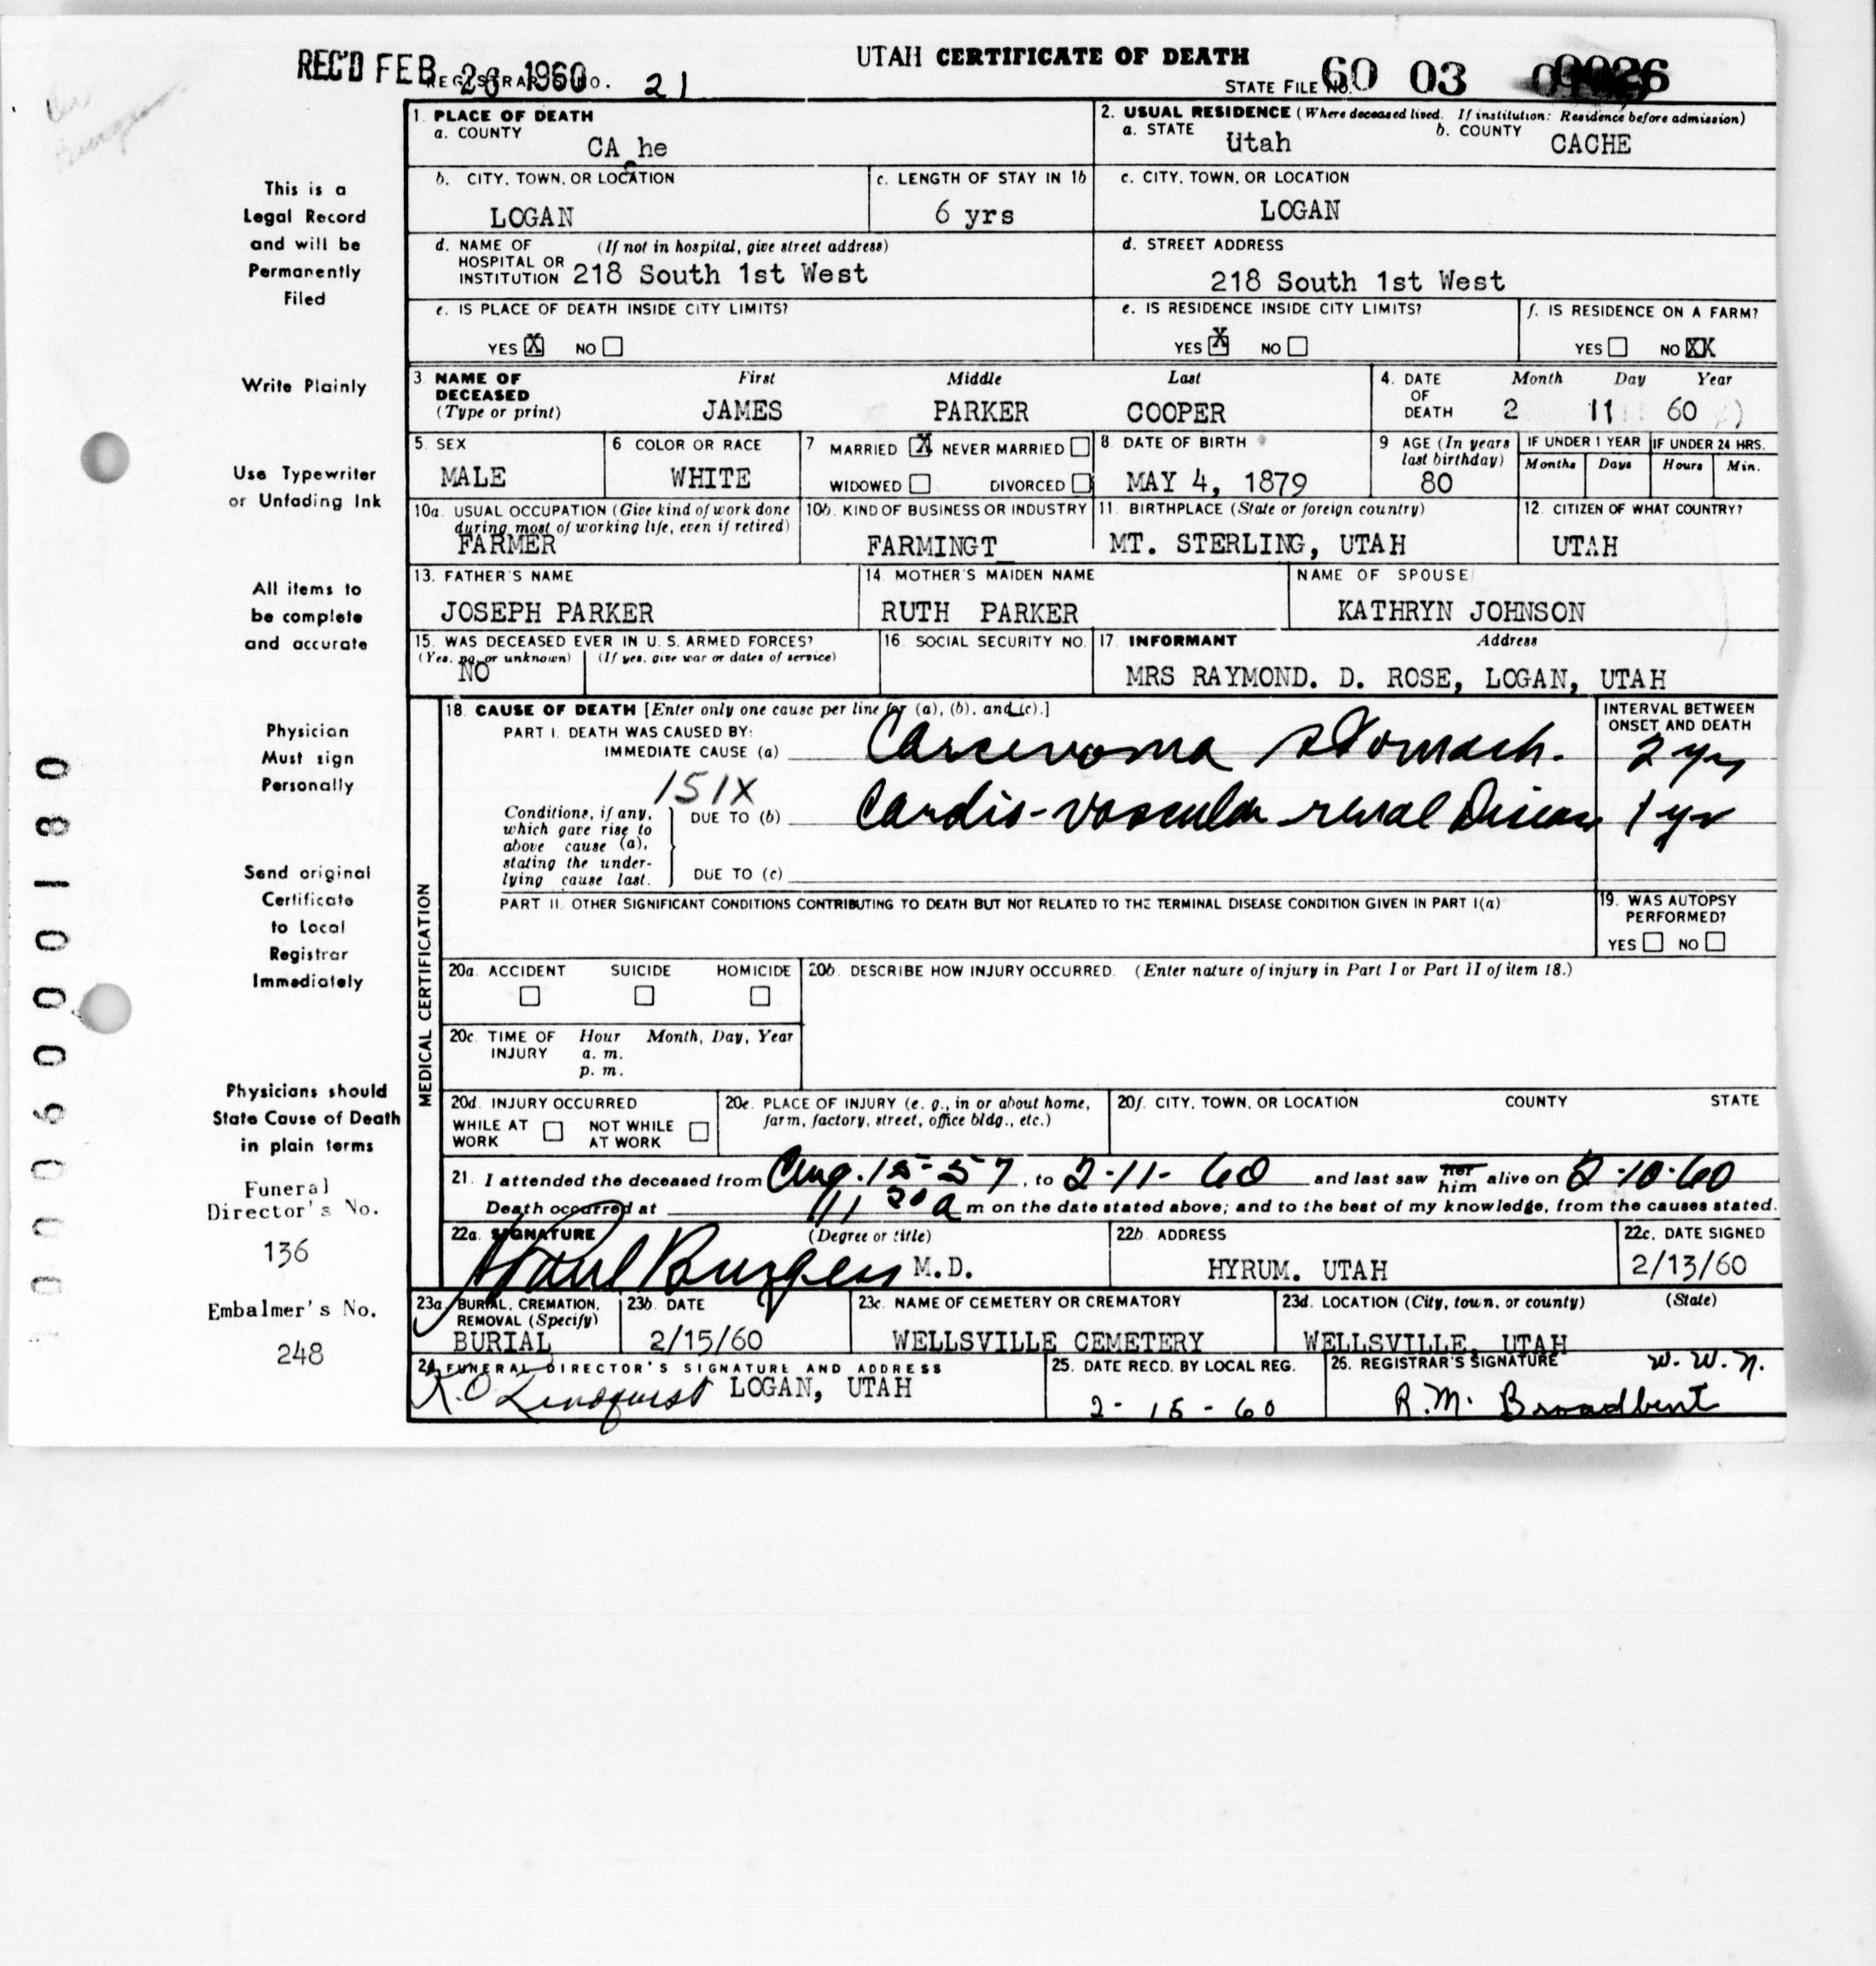 REC'D FEB 26 1960
REGISTRAR'S NO. 21
UTAH CERTIFICATE OF DEATH
STATE FILE NO. 60 03 0026
1. PLACE OF DEATH
a. COUNTY
CAche
2. USUAL RESIDENCE (Where deceased lived. If institution: Residence before admission)
a. STATE Utah b. COUNTY CACHE
b. CITY, TOWN, OR LOCATION
LOGAN
c. LENGTH OF STAY IN 1b
6 yrs
c. CITY, TOWN, OR LOCATION
LOGAN
d. NAME OF HOSPITAL OR INSTITUTION (If not in hospital, give street address)
218 South 1st West
d. STREET ADDRESS
218 South 1st West
e. IS PLACE OF DEATH INSIDE CITY LIMITS?
YES X NO
e. IS RESIDENCE INSIDE CITY LIMITS?
YES X NO
f. IS RESIDENCE ON A FARM?
YES NO XX
3 NAME OF DECEASED (Type or print)
First Middle Last
JAMES PARKER COOPER
4. DATE OF DEATH
Month Day Year
2 11 60
5. SEX
MALE
6 COLOR OR RACE
WHITE
7 MARRIED X NEVER MARRIED
WIDOWED DIVORCED
8. DATE OF BIRTH
MAY 4, 1879
9 AGE (In years last birthday)
80
IF UNDER 1 YEAR
Months Days
IF UNDER 24 HRS.
Hours Min.
10a. USUAL OCCUPATION (Give kind of work done during most of working life, even if retired)
FARMER
10b. KIND OF BUSINESS OR INDUSTRY
FARMINGT
11. BIRTHPLACE (State or foreign country)
MT. STERLING, UTAH
12. CITIZEN OF WHAT COUNTRY?
UTAH
13. FATHER'S NAME
JOSEPH PARKER
14. MOTHER'S MAIDEN NAME
RUTH PARKER
NAME OF SPOUSE
KATHRYN JOHNSON
15. WAS DECEASED EVER IN U. S. ARMED FORCES?
(Yes, no, or unknown) (If yes, give war or dates of service)
NO
16. SOCIAL SECURITY NO.
17. INFORMANT Address
MRS RAYMOND. D. ROSE, LOGAN, UTAH
MEDICAL CERTIFICATION
18. CAUSE OF DEATH [Enter only one cause per line for (a), (b), and (c).]
INTERVAL BETWEEN ONSET AND DEATH
PART I. DEATH WAS CAUSED BY:
IMMEDIATE CAUSE (a) Carcinoma stomach. 2 yrs
151X
Conditions, if any, which gave rise to above cause (a), stating the underlying cause last.
DUE TO (b) Cardio-vascular renal Disease 1 yr
DUE TO (c)
PART II. OTHER SIGNIFICANT CONDITIONS CONTRIBUTING TO DEATH BUT NOT RELATED TO THE TERMINAL DISEASE CONDITION GIVEN IN PART I(a)
19. WAS AUTOPSY PERFORMED?
YES NO
20a. ACCIDENT SUICIDE HOMICIDE
20b. DESCRIBE HOW INJURY OCCURRED. (Enter nature of injury in Part I or Part II of item 18.)
20c. TIME OF INJURY
Hour Month, Day, Year
a. m.
p. m.
20d. INJURY OCCURRED
WHILE AT WORK NOT WHILE AT WORK
20e. PLACE OF INJURY (e. g., in or about home, farm, factory, street, office bldg., etc.)
20f. CITY, TOWN, OR LOCATION COUNTY STATE
21. I attended the deceased from Aug. 15-57, to 2-11-60 and last saw her him alive on 2-10-60
Death occurred at 11 30 a m on the date stated above; and to the best of my knowledge, from the causes stated.
22a. SIGNATURE (Degree or title)
Paul Burgess M.D.
22b. ADDRESS
HYRUM. UTAH
22c. DATE SIGNED
2/13/60
23a. BURIAL, CREMATION, REMOVAL (Specify)
BURIAL
23b. DATE
2/15/60
23c. NAME OF CEMETERY OR CREMATORY
WELLSVILLE CEMETERY
23d. LOCATION (City, town, or county) (State)
WELLSVILLE, UTAH
24. FUNERAL DIRECTOR'S SIGNATURE AND ADDRESS
Lindquist LOGAN, UTAH
25. DATE RECD. BY LOCAL REG.
2-15-60
26. REGISTRAR'S SIGNATURE W.W.N.
R.M. Broadbent
This is a
Legal Record
and will be
Permanently
Filed
Write Plainly
Use Typewriter
or Unfading Ink
All items to
be complete
and accurate
Physician
Must sign
Personally
Send original
Certificate
to Local
Registrar
Immediately
Physicians should
State Cause of Death
in plain terms
Funeral
Director's No.
136
Embalmer's No.
248